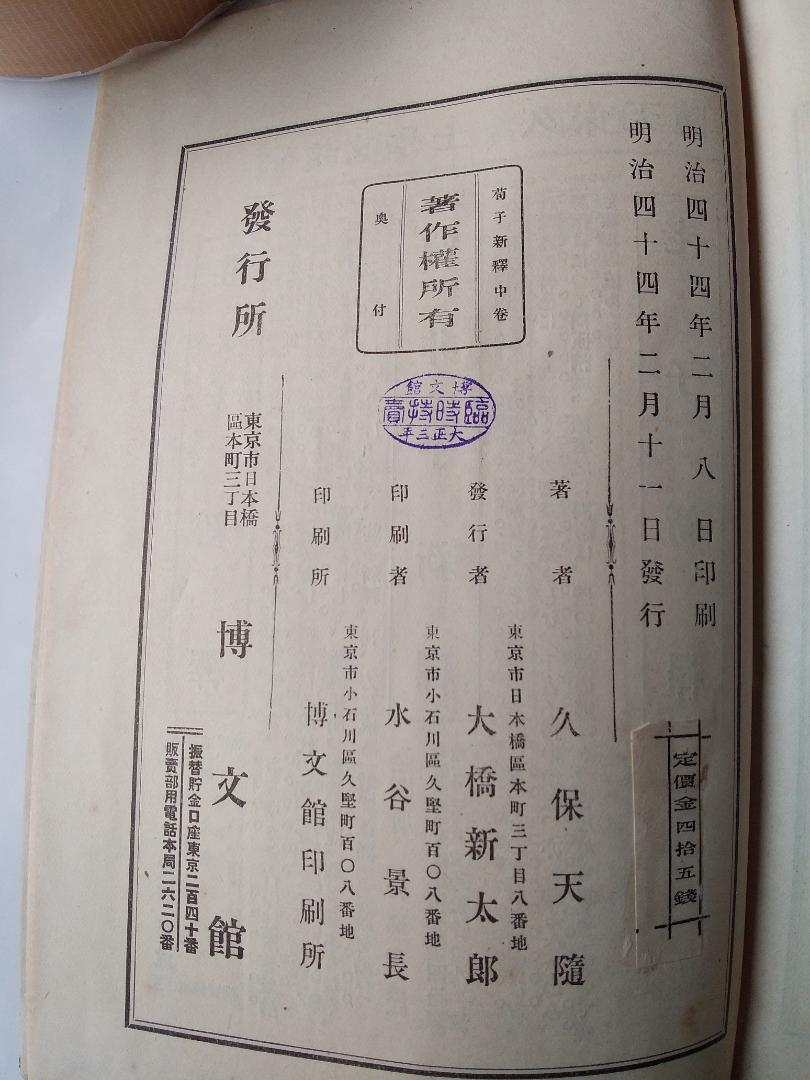 明治四十四年二月八日印刷
明治四十四年二月十一日發行
定價金四拾五錢
荀子新釋中卷
著作權所有
奥付
博文館
臨時特賣
大正三年
著者
久保天隨
發行者
東京市日本橋區本町三丁目八番地
大橋新太郎
印刷者
東京市小石川區久堅町百〇八番地
水谷景長
印刷所
東京市小石川區久堅町百〇八番地
博文館印刷所
發行所
東京市日本橋
區本町三丁目
博文館
振替貯金口座東京二百四十番
販賣部用電話本局二六二〇番